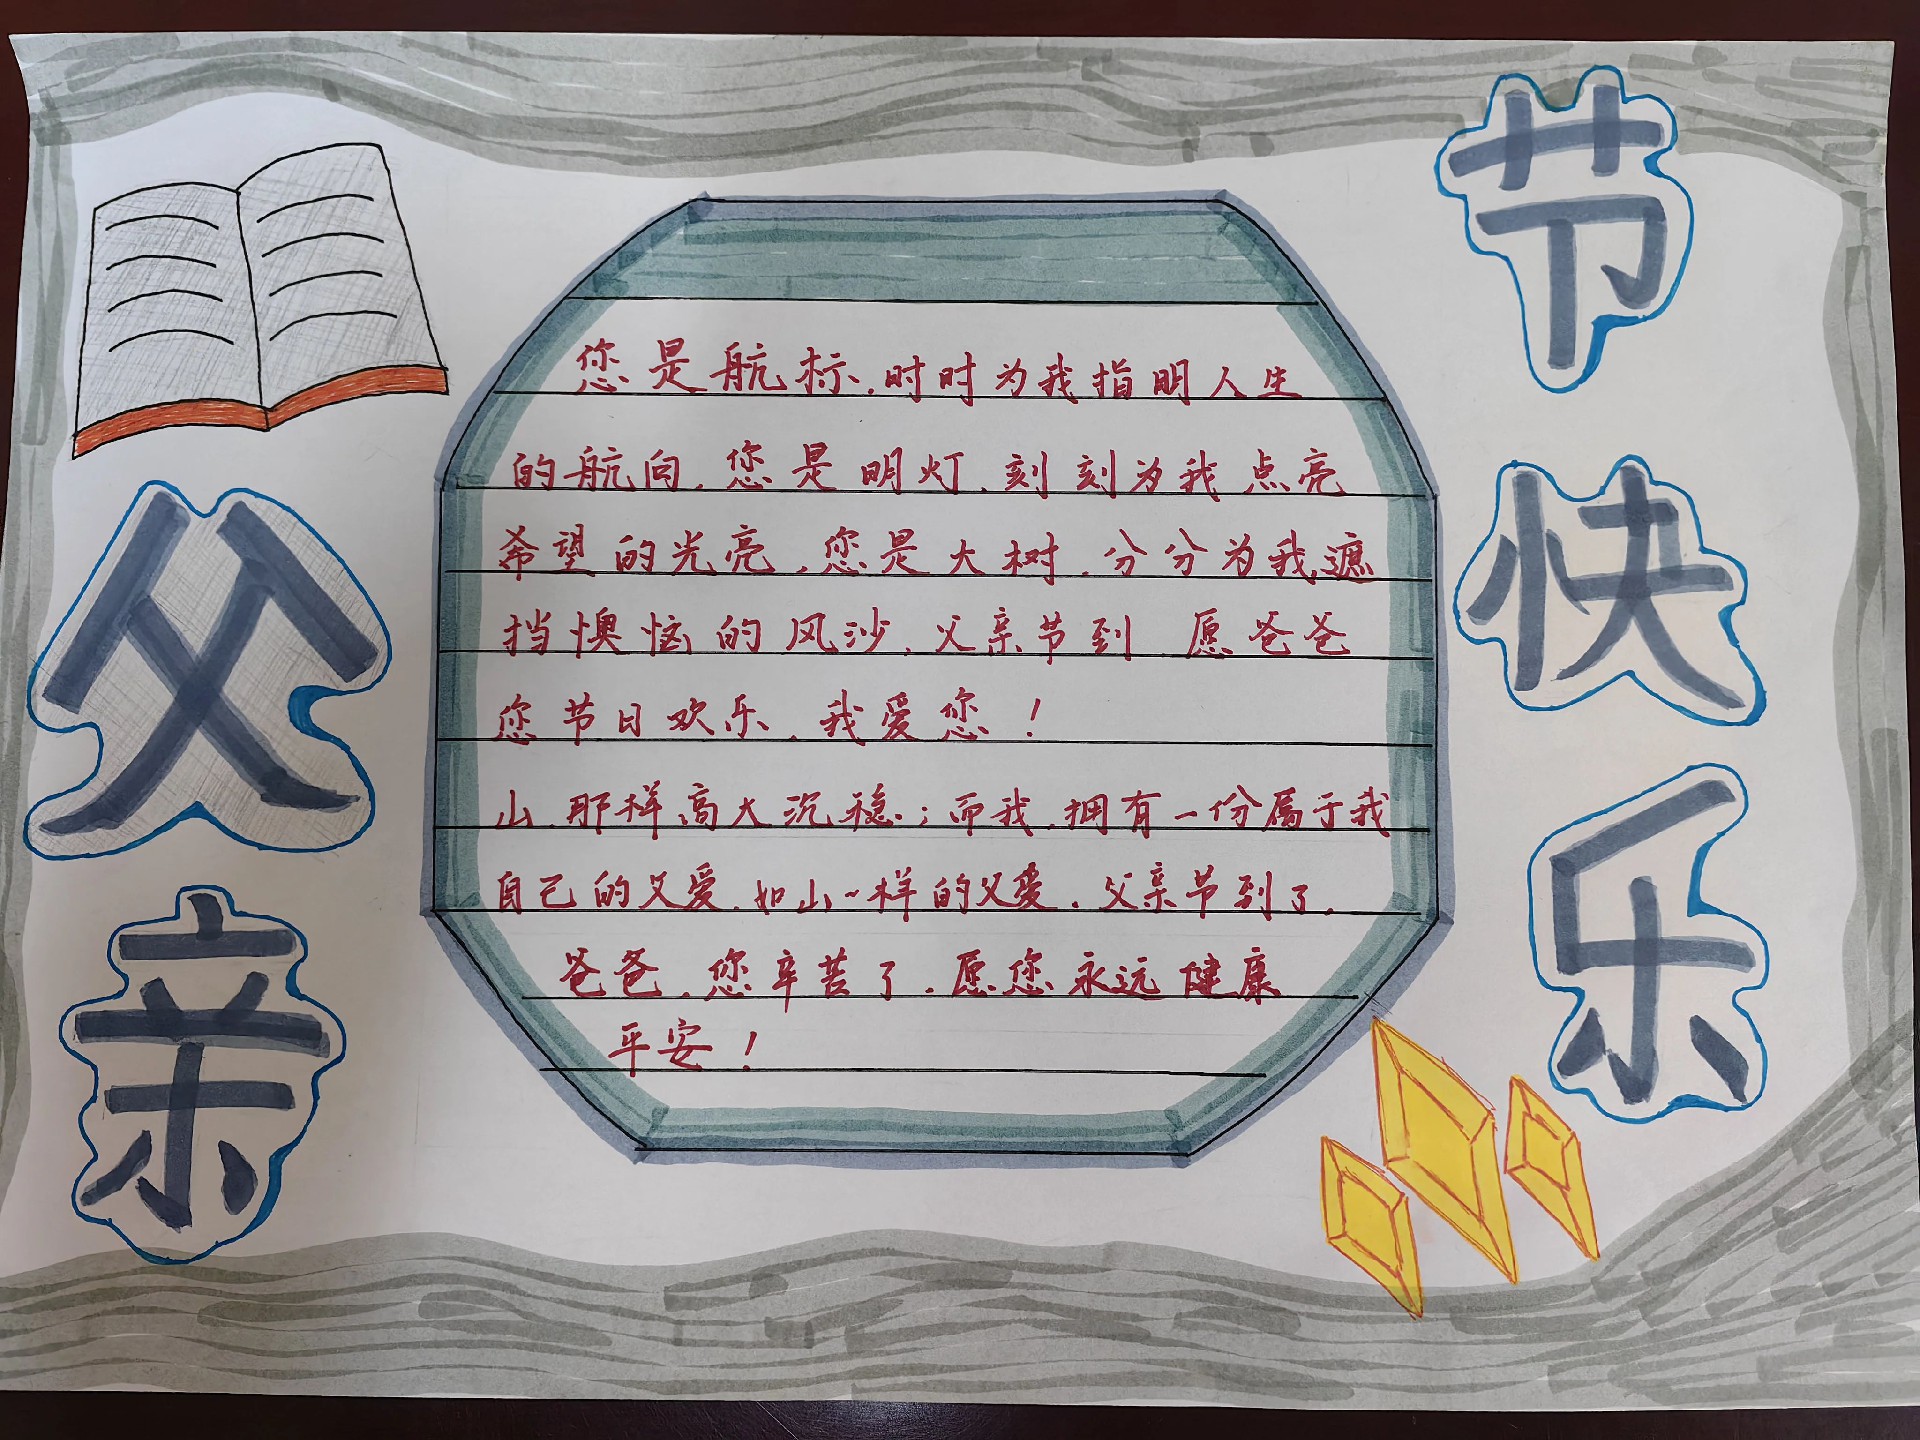 父亲
节快乐
您是航标,时时为我指明人生
的航向,您是明灯,刻刻为我点亮
希望的光亮,您是大树,分分为我遮
挡懊恼的风沙,父亲节到 愿爸爸
您节日欢乐,我爱您!
山,那样高大沉稳;而我,拥有一份属于我
自己的父爱,如山一样的父爱,父亲节到了,
爸爸,您辛苦了,愿您永远健康
平安!